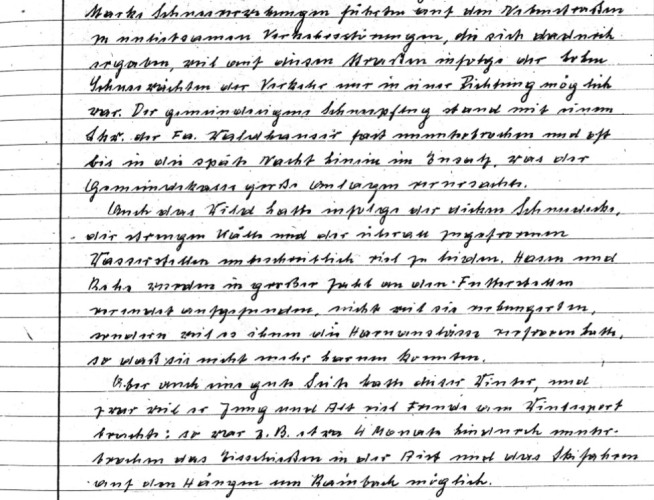 Starke Schneeverwehungen führten auf den Nebenstraßen
zu unliebsamen Verkehrsstörungen, die sich dadurch
ergaben, weil auf diesen Straßen infolge der hohen
Schneewächten der Verkehr nur in einer Richtung möglich
war. Der gemeindeeigene Schneepflug stand mit einem
Lkw. der Fa. fast ununterbrochen und oft
bis in die späte Nacht hinein im Einsatz, was der
Gemeindekasse große Auslagen verursachte.
Auch das Wild hatte infolge der dicken Schneedecke,
der strengen Kälte und der überall zugefrorenen
Wasserstellen unbeschreiblich viel zu leiden. Hasen und
Rehe wurden in großer Zahl an den Futterstellen
verendet aufgefunden, nicht weil sie verhungerten,
sondern weil es ihnen die Harnauslässe verfroren hatte,
so daß sie nicht mehr harnen konnten.
Aber auch eine gute Seite hatte dieser Winter, und
zwar weil er Jung und Alt viel Freude am Wintersport
brachte; so war z. B. etwa 4 Monate hindurch ununter-
brochen das Eisschießen in der Aist und das Skifahren
auf den Hängen um Rainbach möglich.